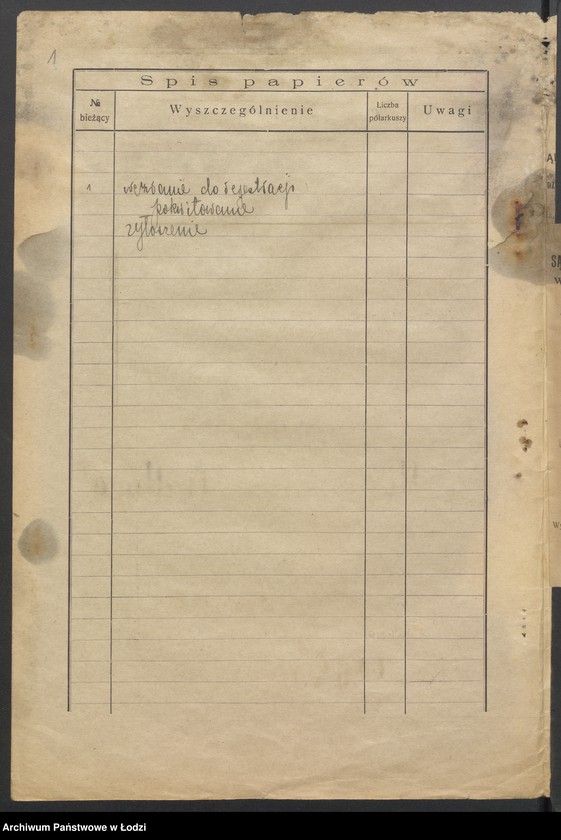 1
Spis papierów
№ bieżący
Wyszczególnienie
Liczba półarkuszy
Uwagi
1 wezwanie do rejestracji
pokwitowanie
zgłoszenie
Archiwum Państwowe w Łodzi